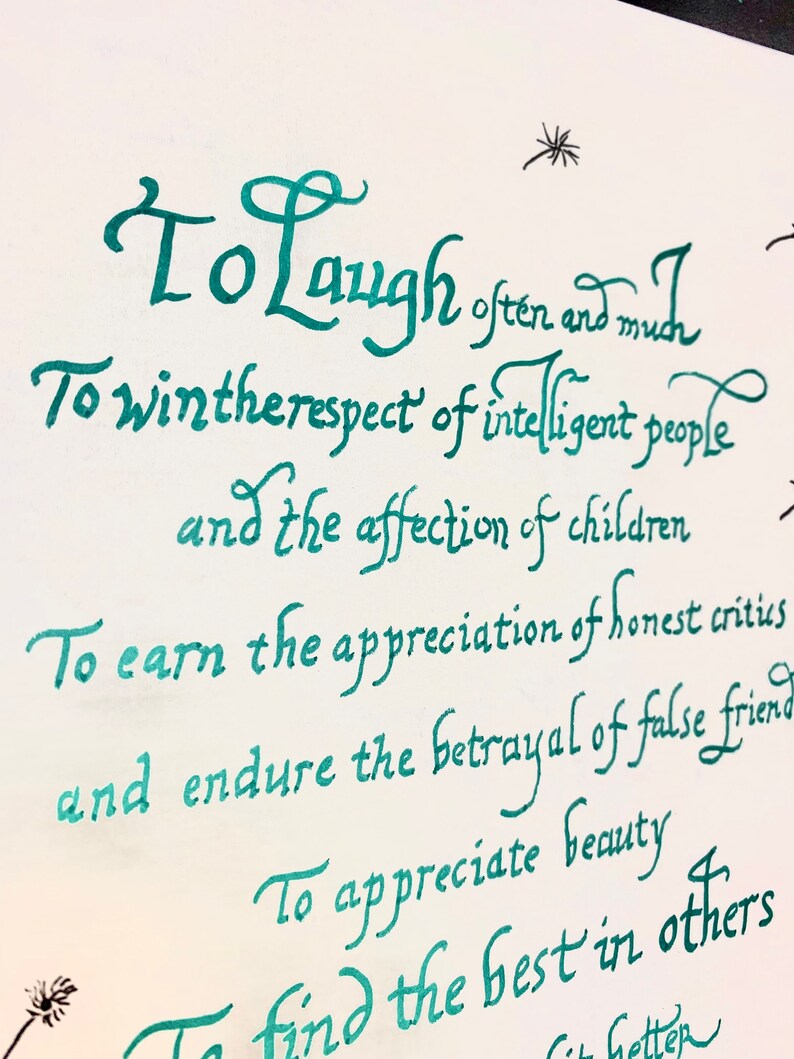 To Laugh often and much
To win the respect of intelligent people
and the affection of children
To earn the appreciation of honest critics
and endure the betrayal of false friend
To appreciate beauty
To find the best in others
bit better